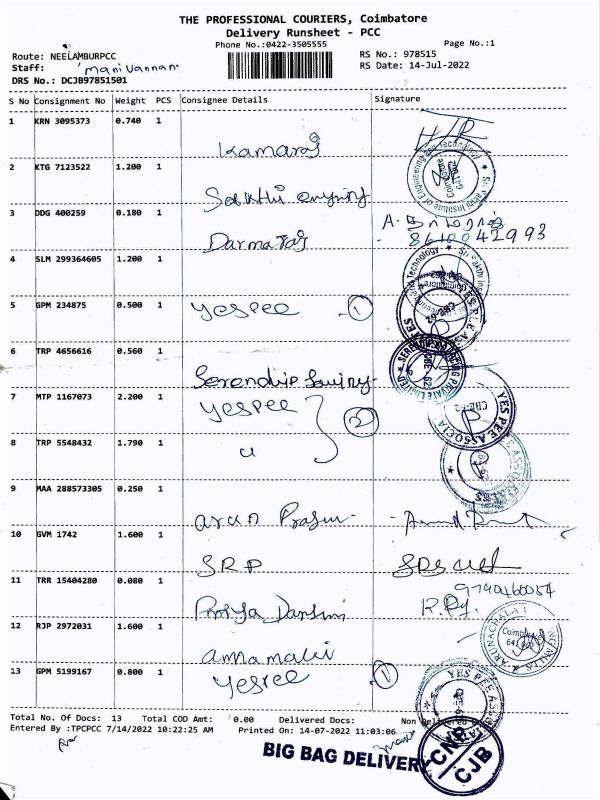 THE PROFESSIONAL COURIERS, Coimbatore
Delivery Runsheet - PCC
Phone No.:0422-3505555
Page No.:1
Route: NEELAMBURPCC
RS No.: 978515
Staff: Manivannan
RS Date: 14-Jul-2022
DRS No.: DCJB97851501
S No Consignment No Weight PCS Consignee Details Signature
1 KRN 3095373 0.740 1
Kamaraj
2 KTG 7123522 1.200 1
Sakthi
3 DDG 400259 0.180 1
Darmaraj
4 SLM 299364605 1.200 1
5 GPM 234875 0.500 1
Yespee 1
6 TRP 4656616 0.560 1
Serendip
7 MTP 1167073 2.200 1
Yespee
2
8 TRP 5548432 1.790 1
u
9 MAA 288573305 0.250 1
Arun
10 GVM 1742 1.600 1
SRP
11 TRR 15404280 0.080 1
Priya Darshni
12 RJP 2972031 1.600 1
Annamalai
13 GPM 5199167 0.800 1
Yespee 1
YES PEE ASSOCIATES
Total No. Of Docs: 13 Total COD Amt: 0.00 Delivered Docs: Non Delivered
Entered By :TPCPCC 7/14/2022 10:22:25 AM Printed On: 14-07-2022 11:03:06
BIG BAG DELIVERY
CNP
CJB